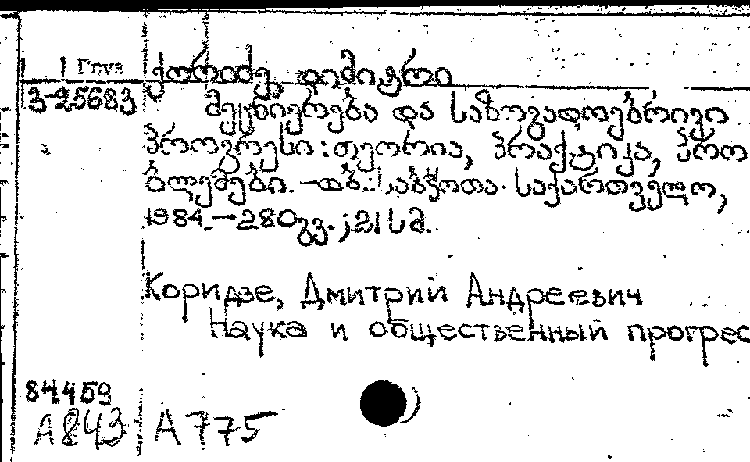 Груз
ქორიძე, დიმიტრი
3-25683
მეცნიერება და საზოგადოებრივი
პროგრესი : თეორია, პრაქტიკა, პრო
ბლემები. — თბ. : საბჭოთა საქართველო,
1984. — 280 გვ. ; 21 სმ.
Коридзе, Дмитрий Андреевич
Наука и общественный прогрес
84.459
А843 А775